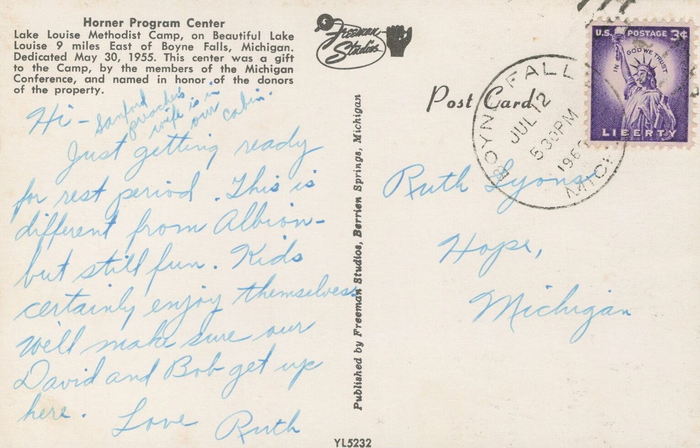 Horner Program Center
Lake Louise Methodist Camp, on Beautiful Lake
Louise 9 miles East of Boyne Falls, Michigan.
Dedicated May 30, 1955. This center was a gift
to the Camp, by the members of the Michigan
Conference, and named in honor of the donors
of the property.
Hi -
Sanford
preacher's
wife is in
our cabin.
Just getting ready
for rest period. This is
different from Albion -
but still fun. Kids
certainly enjoy themselves
We'll make sure our
David and Bob get up
here. Love Ruth
Published by Freeman Studios, Berrien Springs, Michigan
YL5232
Freeman
Studios
Post Card
BOYNE FALL
JUL 12
5 30 PM
MICH
U.S. POSTAGE 3¢
IN GOD WE TRUST
LIBERTY
Ruth Lyons
Hope,
Michigan